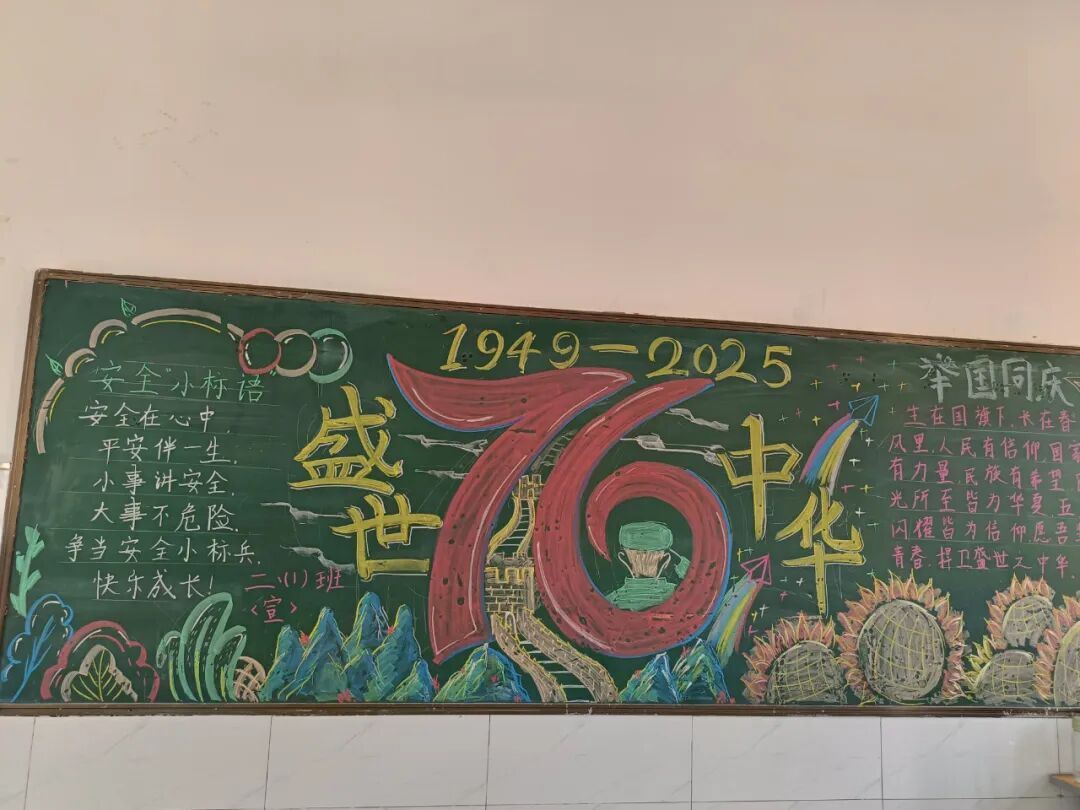 安全"小标语"
安全在心中
平安伴一生,
小事讲安全,
大事不危险,
争当安全小标兵,
快乐成长!
二、(1)班
<宣>
1949-2025
盛世
76
中华
举国同庆
生在国旗下,长在春
风里,人民有信仰国家
有力量,民族有希望
光所至皆为华夏五
闪耀皆为信仰愿吾
青春,捍卫盛世之中华,